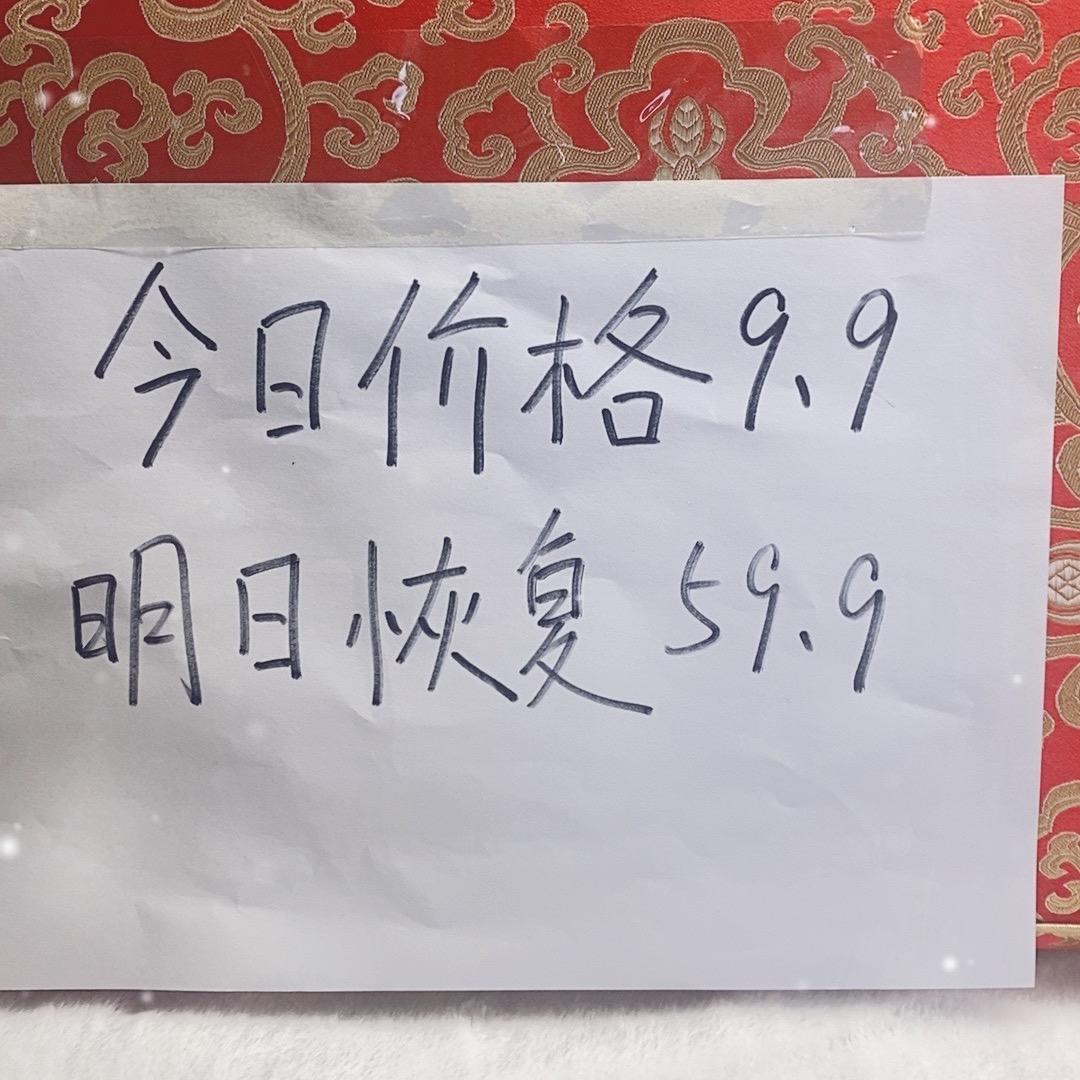 今日价格9.9
明日恢复59.9